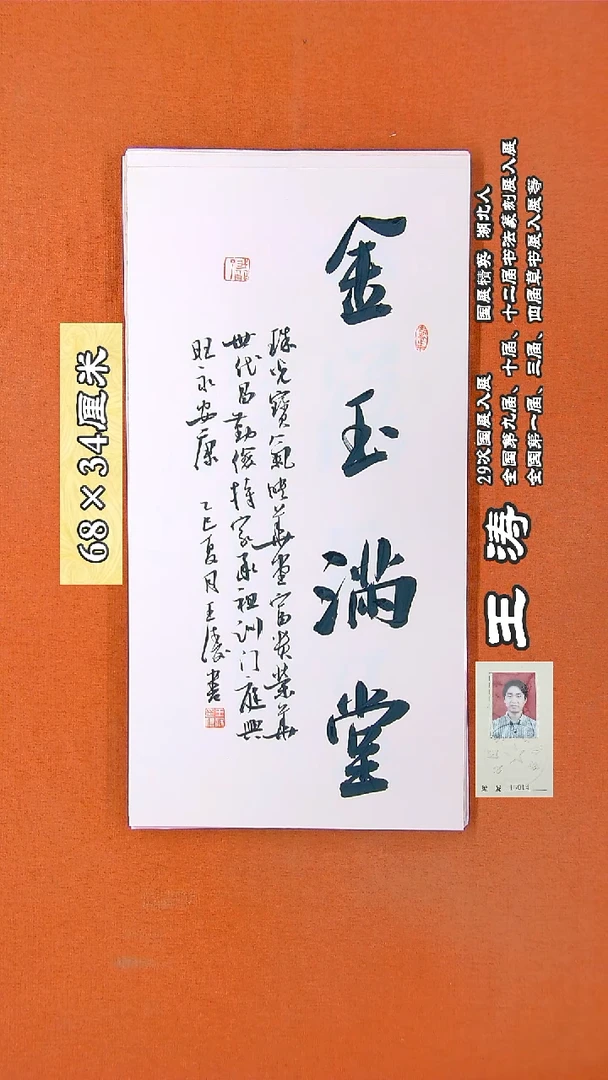 金玉满堂
珠光宝氣映華堂富贵荣華
世代昌勤俭持家承祖训门庭興
旺永安康 乙巳夏月王涛書
68×34厘米
王涛
29次国展入展 国展精英 湖北人
全国第九届、十届、十二届书法篆刻展入展
全国第一届、三届、四届草书展入展等